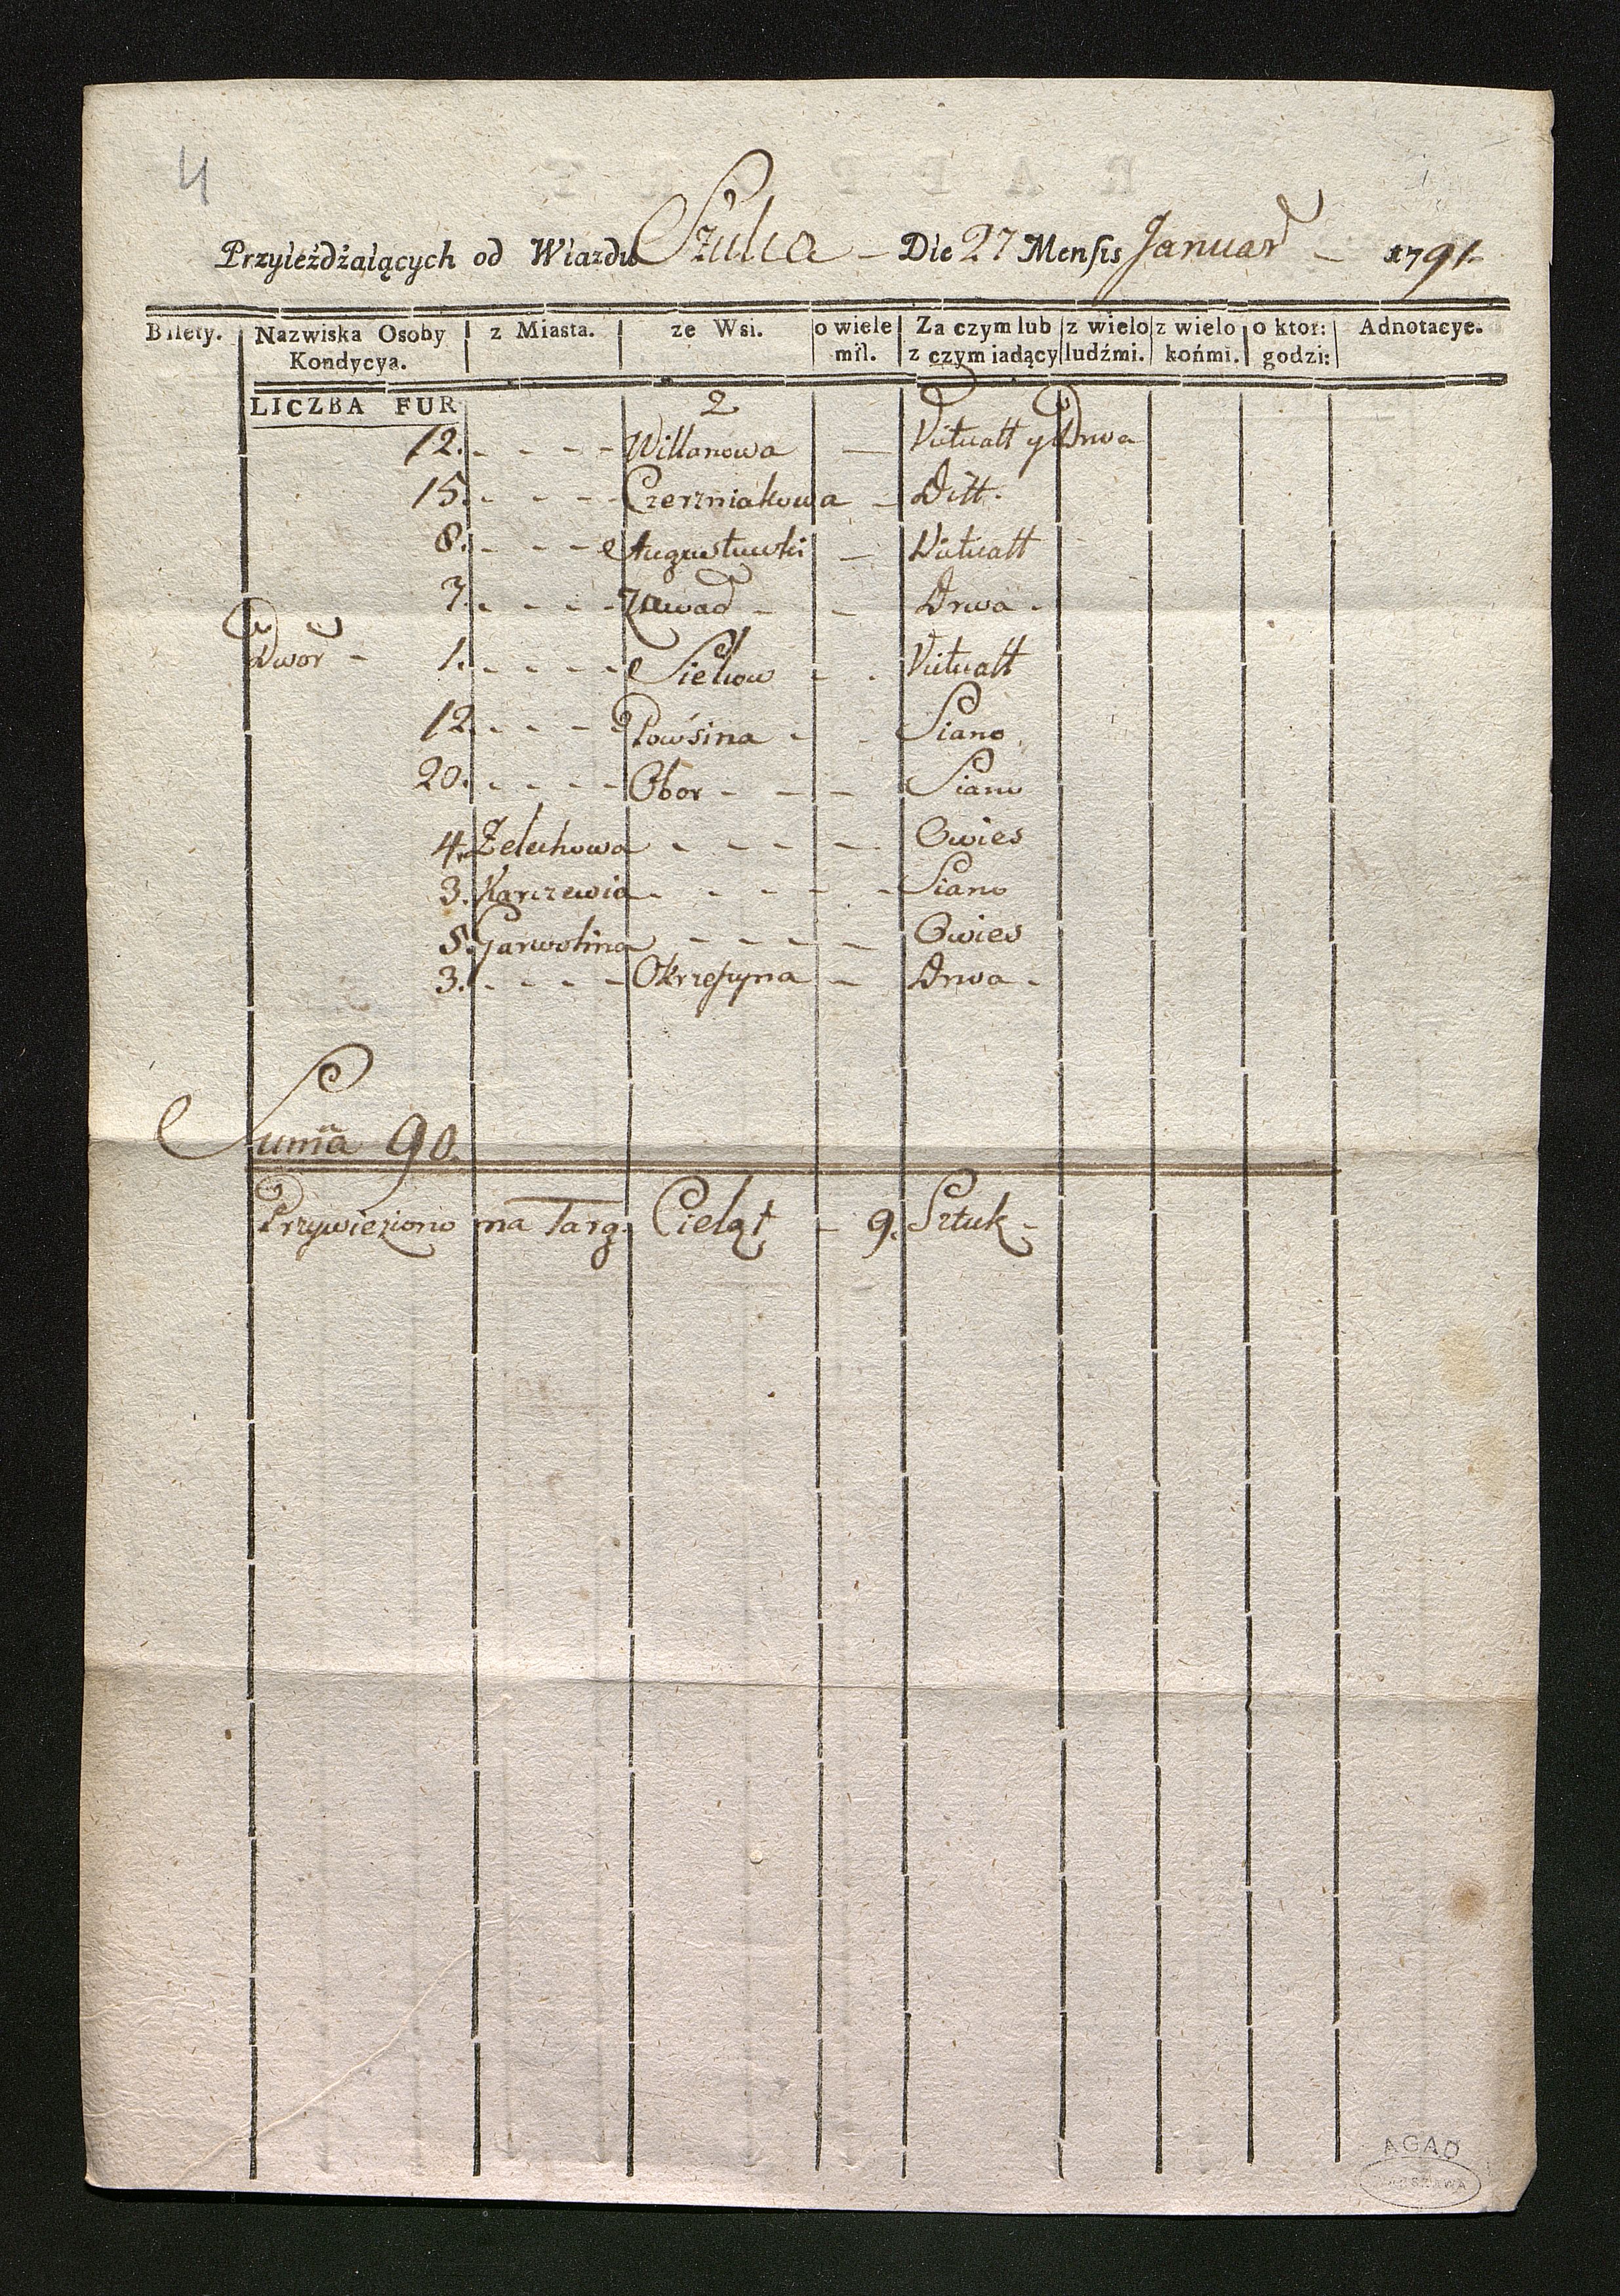 4
Przyieźdźaiących od Wiazdu Szulca – Die 27 Mensis Januar – 1791
Bilety. Nazwiska Osoby Kondycya. z Miasta. ze Wsi. o wiele mil. Za czym lub z czym iadący z wielo ludźmi. z wielo końmi. o ktor: godzi: Adnotacye.
LICZBA FUR
12. - - - - z Willanowa — Victuall y Drwa
15. - - - - Czerzniakowa - Ditt.
8. - - - Augustuwki — Victuall
7. - - - - Zawad - - Drwa -
Dwor - 1. - - - - Sielcow - - Victuall
12. - - - Powsina - - Siano
20. - - - - Obor - - - Siano
4. Zelechowa - - - - - Owies
3. Karczewia - - - - - Siano
5. Garwolina - - - - - Owies
3. - - - - Okrzeszyna - Drwa -
Suma 90.
Przywieziono na Targ Cieląt - 9. Sztuk -
AGAD
WARSZAWA